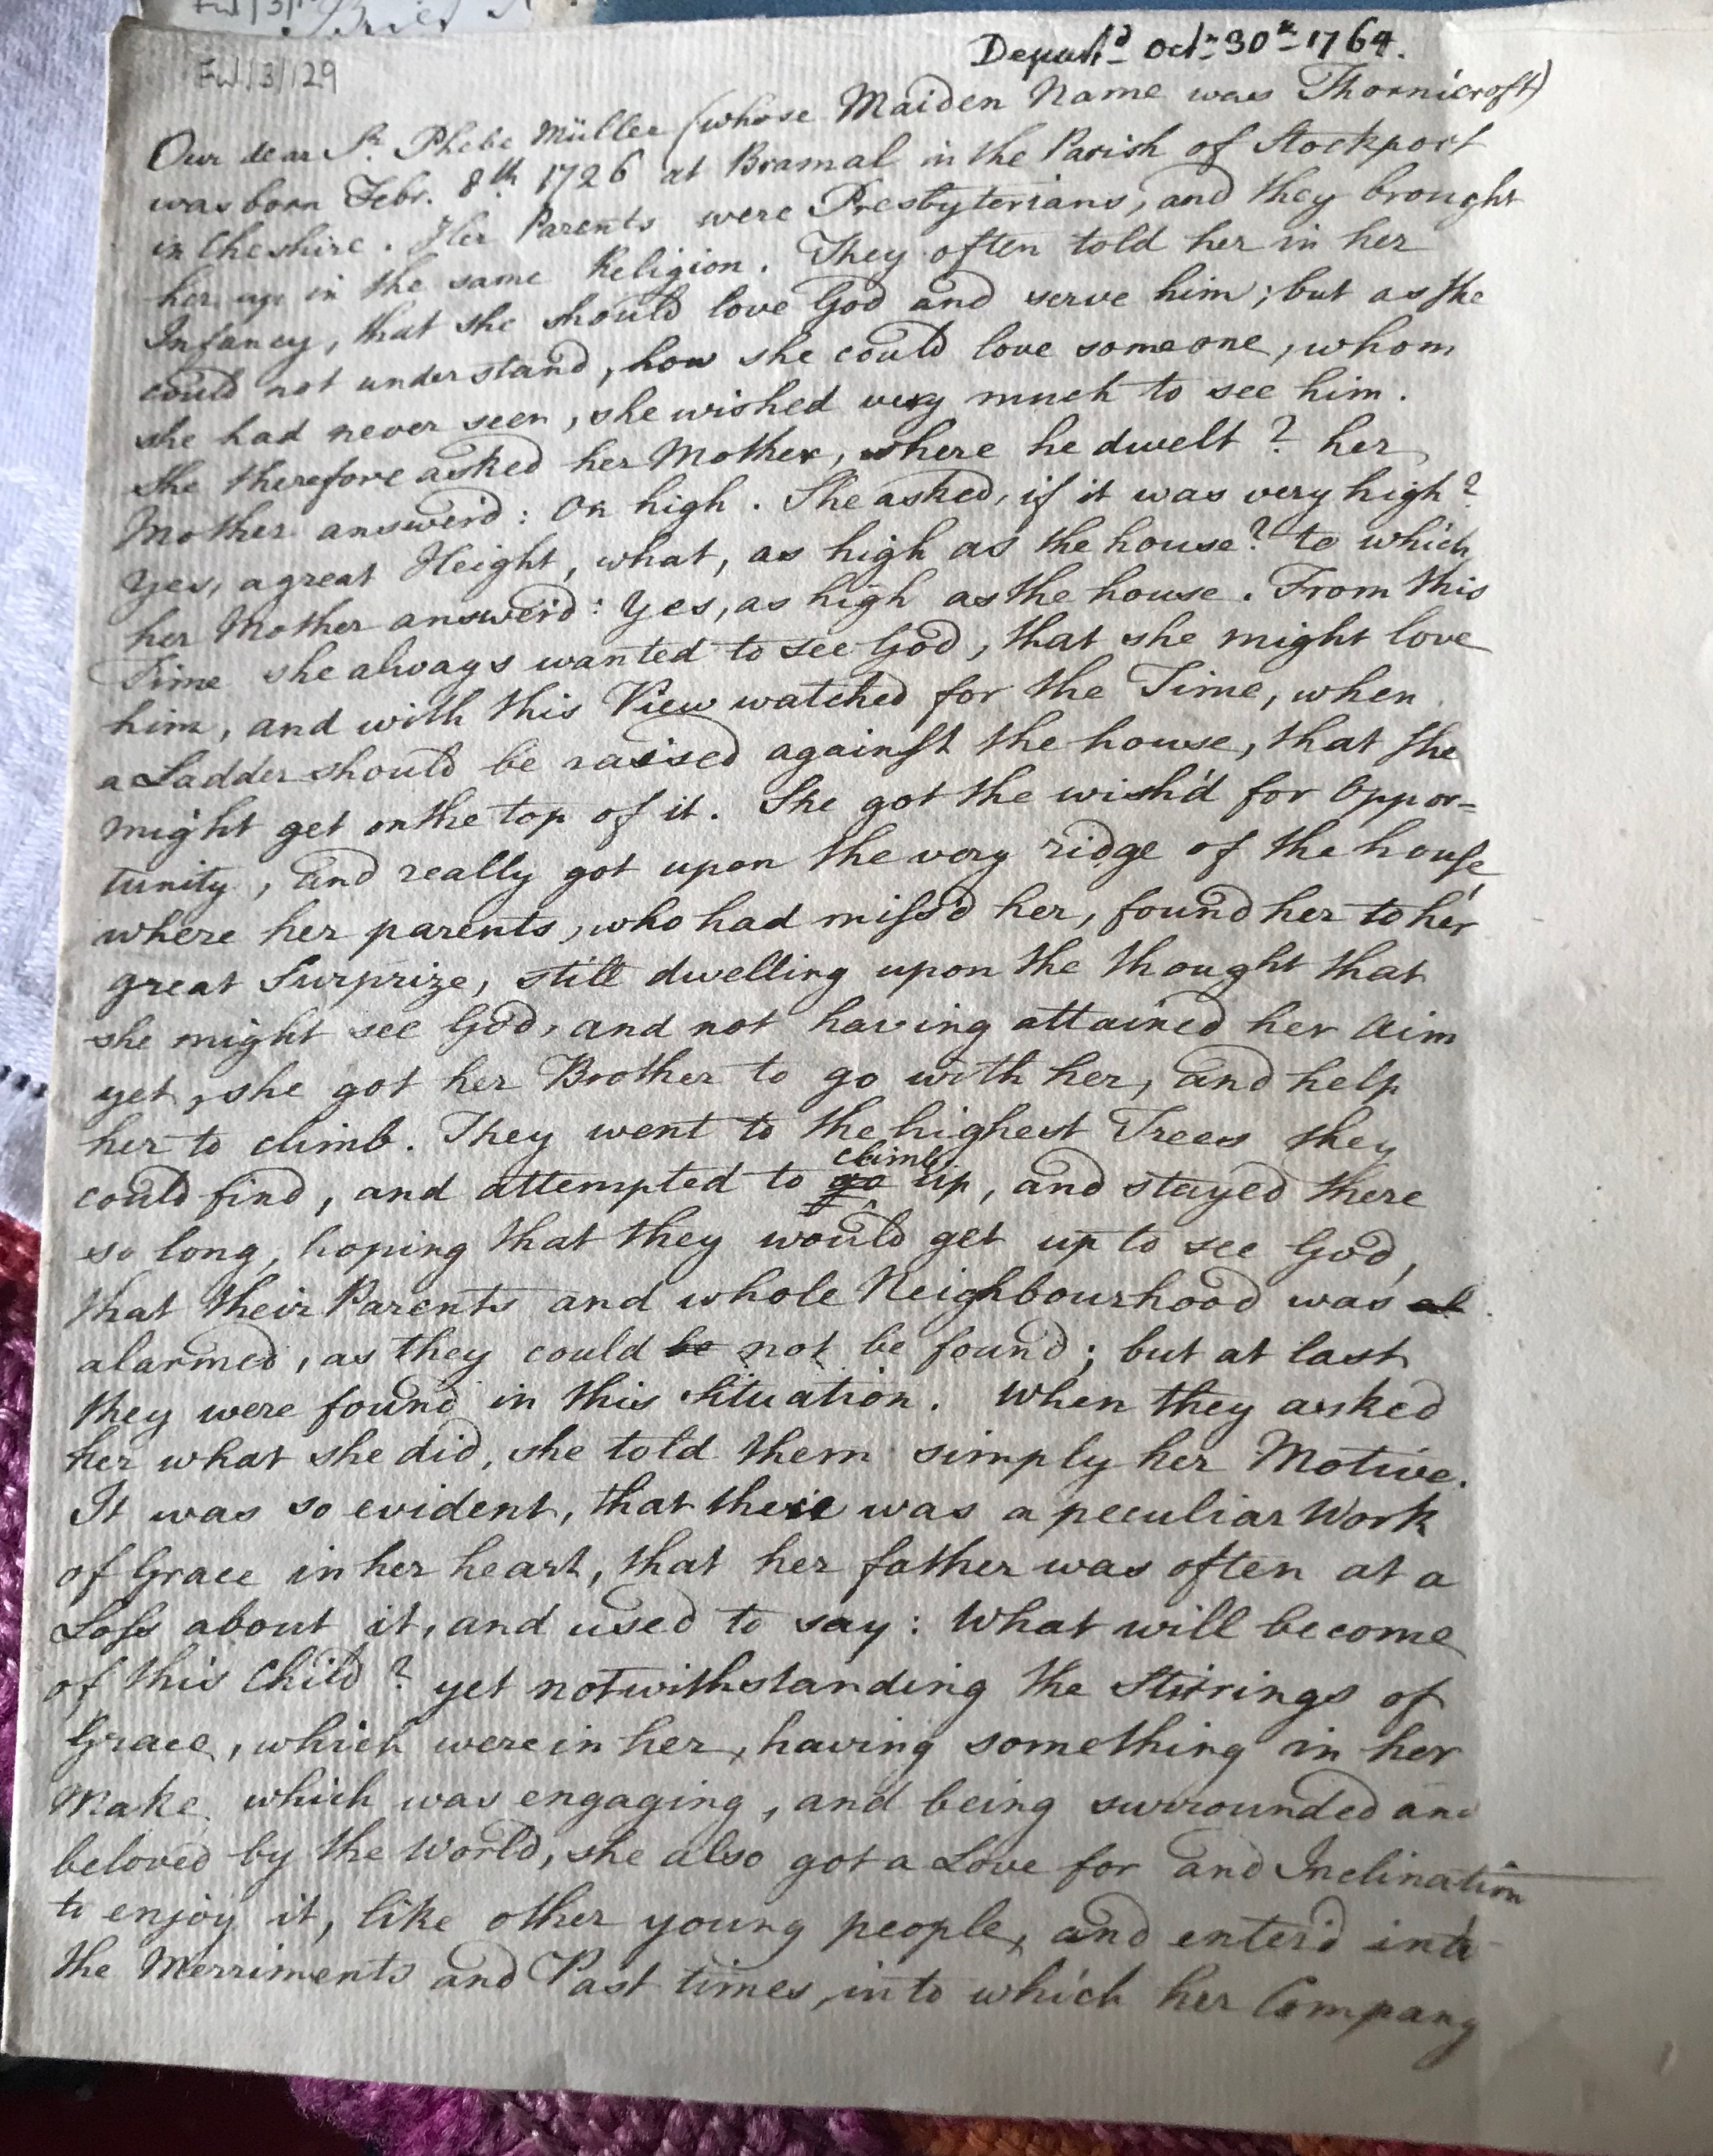 Fu/3/129
Depart.d Oct.r 30th 1764.
Our dear Sr. Phebe Müller (whose Maiden Name was Thornicroft)
was born Febr. 8th 1726 at Bramal in the Parish of Stockport
in Cheshire. Her Parents were Presbyterians, and they brought
her up in the same Religion. They often told her in her
Infancy, that she should love God and serve him; but as she
could not understand, how she could love someone, whom
she had never seen, she wished very much to see him.
She therefore asked her Mother, where he dwelt? her
Mother answer'd: On high. She asked, if it was very high?
Yes, a great Height, what, as high as the house? to which
her Mother answer'd: Yes, as high as the house. From this
Time she always wanted to see God, that she might love
him, and with this View watched for the Time, when
a Ladder should be raised against the house, that she
might get on the top of it. She got the wish'd for Oppor=
tunity, and really got upon the very ridge of the house,
where her parents, who had miss'd her, found her to her
great Surprize, still dwelling upon the thought that
she might see God, and not having attained her Aim
yet, she got her Brother to go with her, and help
her to climb. They went to the highest Trees they
could find, and attempted to go climb up, and stayed there
so long, hoping that they would get up to see God,
that their Parents and whole Neighbourhood was al
alarmed, as they could be not be found; but at last
they were found in this Situation. When they asked
her what she did, she told them simply her Motive.
It was so evident, that there was a peculiar Work
of Grace in her heart, that her father was often at a
Loss about it, and used to say: What will become
of this Child? yet notwithstanding the Stirrings of
Grace, which were in her, having something in her
Make which was engaging, and being surrounded and
beloved by the World, she also got a Love for and Inclination
to enjoy it, like other young people, and enter'd into
the Merriments and Past times, into which her Company